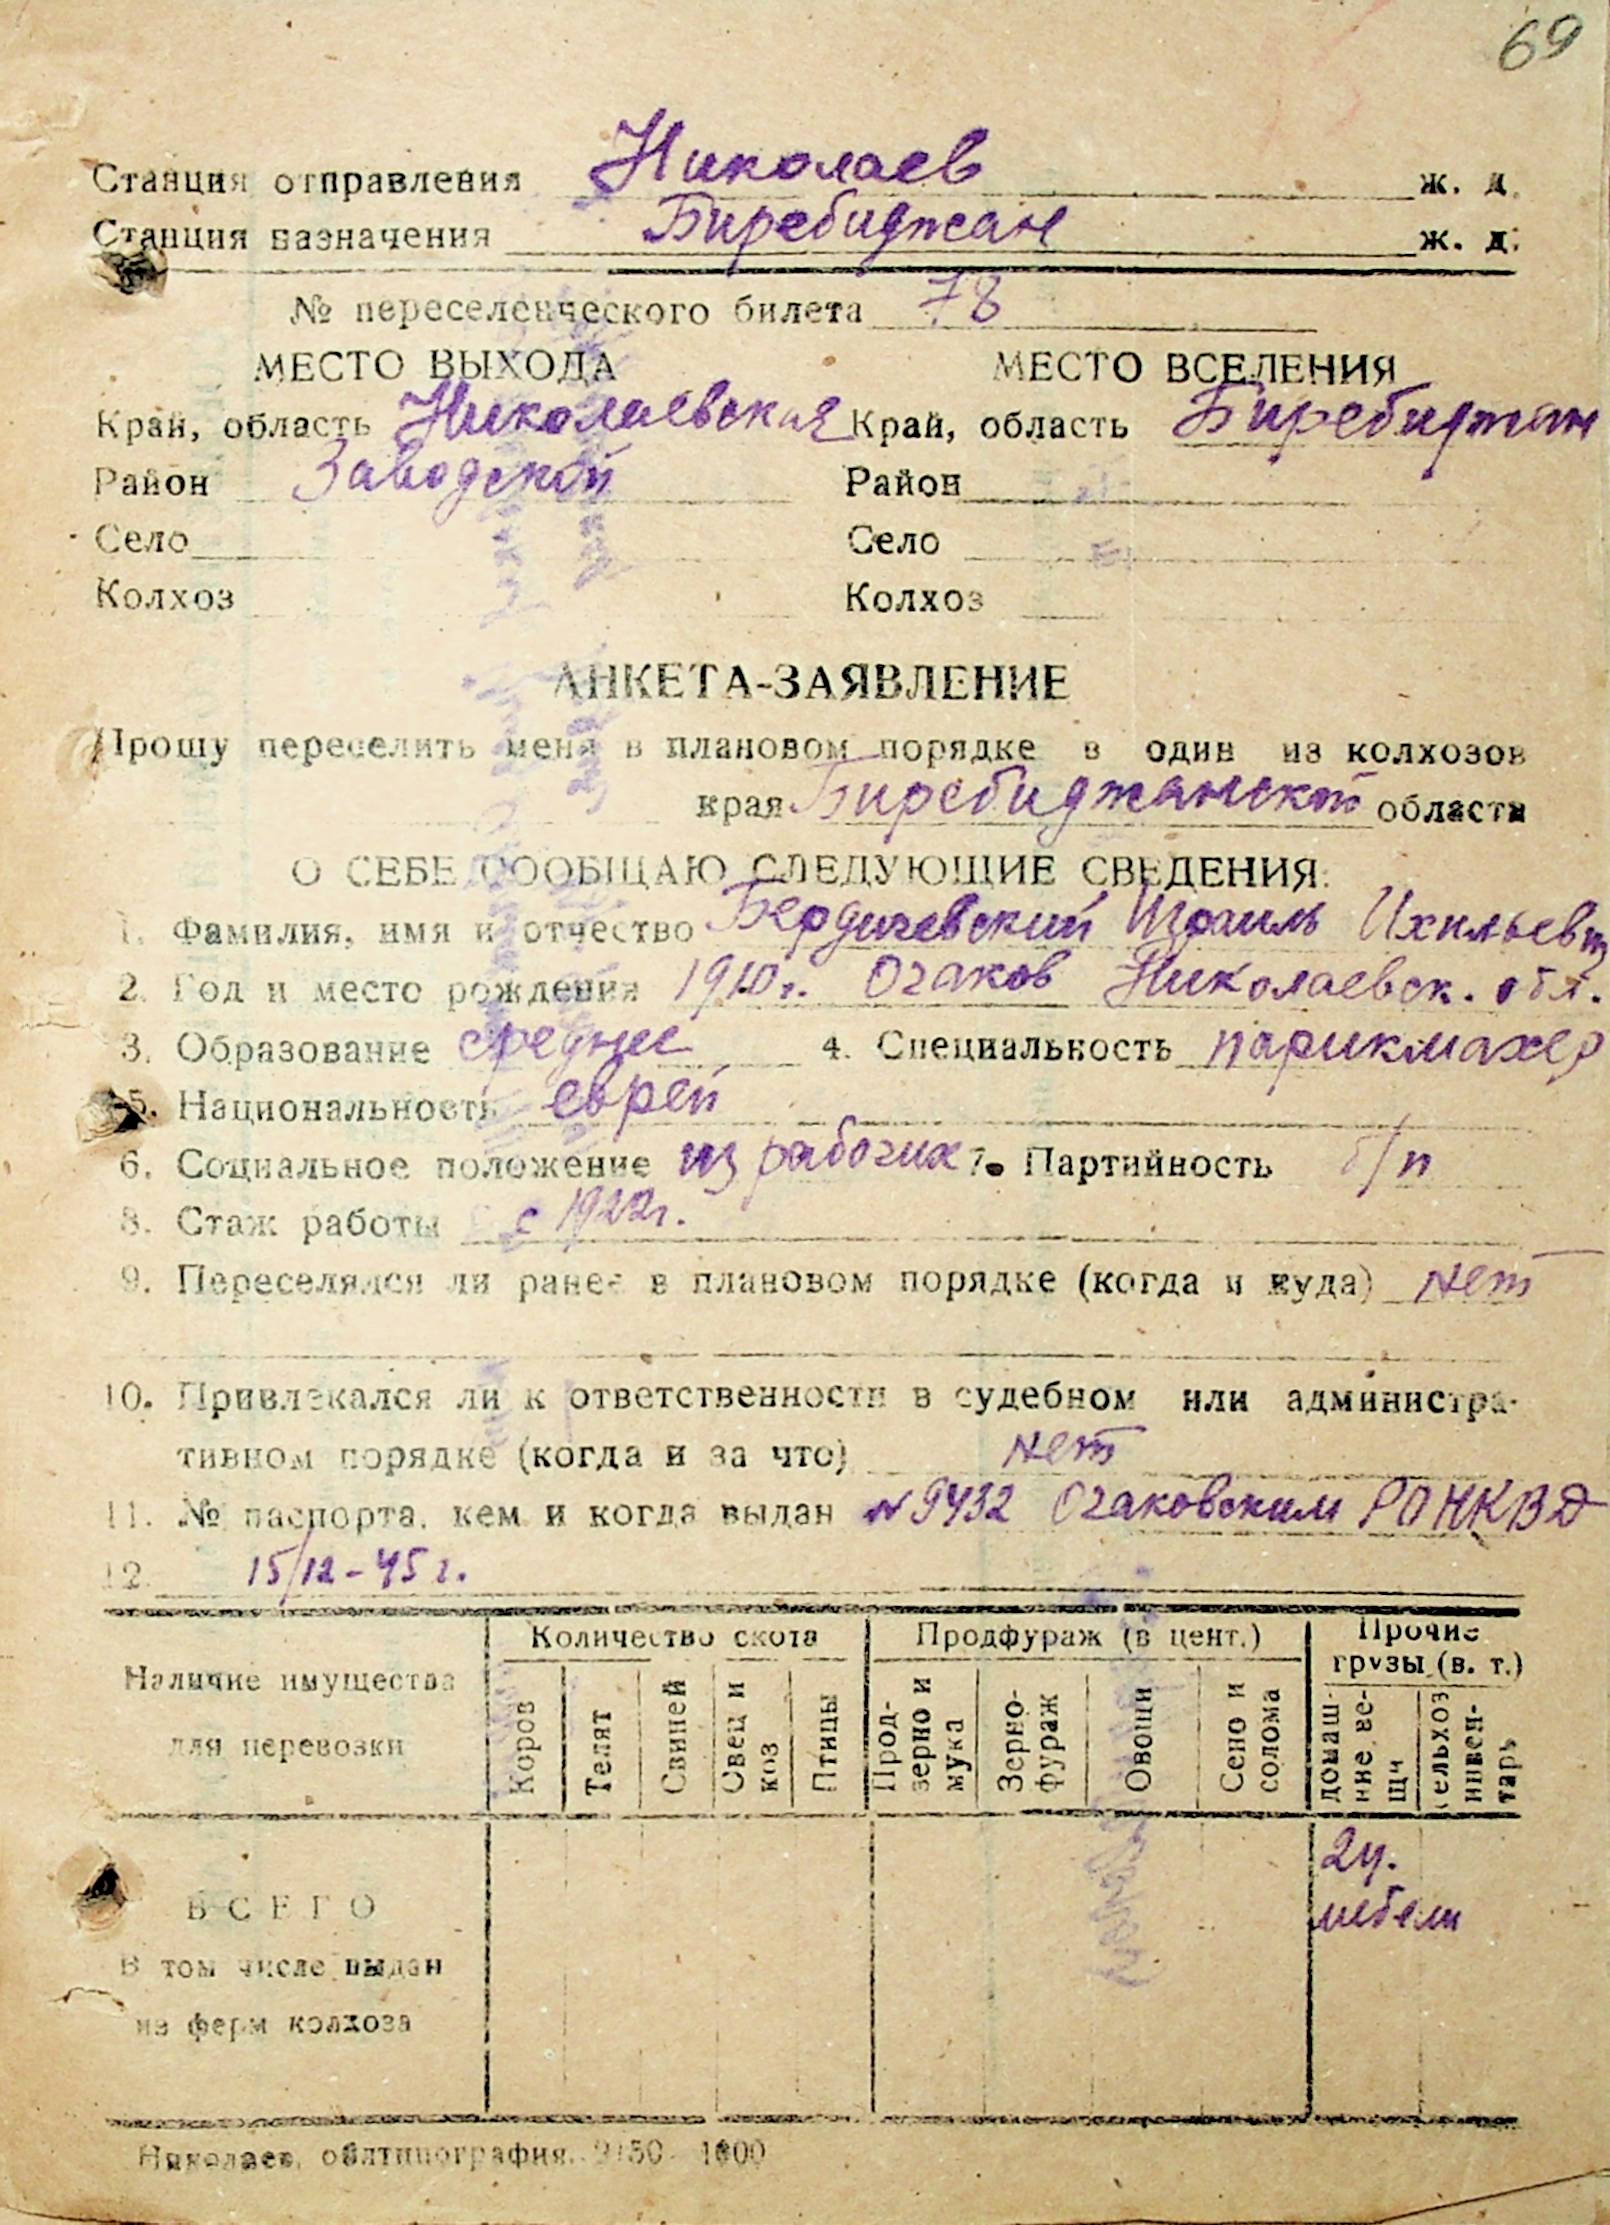 69
Станция отправления Николаев ж. д.
Станция назначения Биребиджан ж. д.
№ переселенческого билета 78
МЕСТО ВЫХОДА МЕСТО ВСЕЛЕНИЯ
Край, область Николаевская Край, область Биребиджан
Район Заводской Район
Село Село
Колхоз Колхоз
АНКЕТА-ЗАЯВЛЕНИЕ
Прошу переселить меня в плановом порядке в один из колхозов
края Биребиджанской области
О СЕБЕ СООБЩАЮ СЛЕДУЮЩИЕ СВЕДЕНИЯ:
1. Фамилия, имя и отчество Бердичевский Израиль Ихильевич
2. Год и место рождения 1910 г. Очаков Николаевск. обл.
3. Образование среднее 4. Специальность парикмахер
5. Национальность еврей
6. Социальное положение из рабочих 7. Партийность б/п
8. Стаж работы с 1922 г.
9. Переселялся ли ранее в плановом порядке (когда и куда) нет
10. Привлекался ли к ответственности в судебном или администра-
тивном порядке (когда и за что) нет
11. № паспорта, кем и когда выдан №9432 Очаковским РОНКВД
12. 15/12-45 г.
Наличие имущества для перевозки
Количество скота Продфураж (в цент.) Прочие грузы (в. т.)
Коров Телят Свиней Овец и коз Птицы Прод-зерно и мука Зерно-фураж Овощи Сено и солома домаш-ние ве-щи сельхоз инвен-тарь
2 ц. мебели
ВСЕГО
В том числе выдан
из ферм колхоза
Николаев, облтипография.